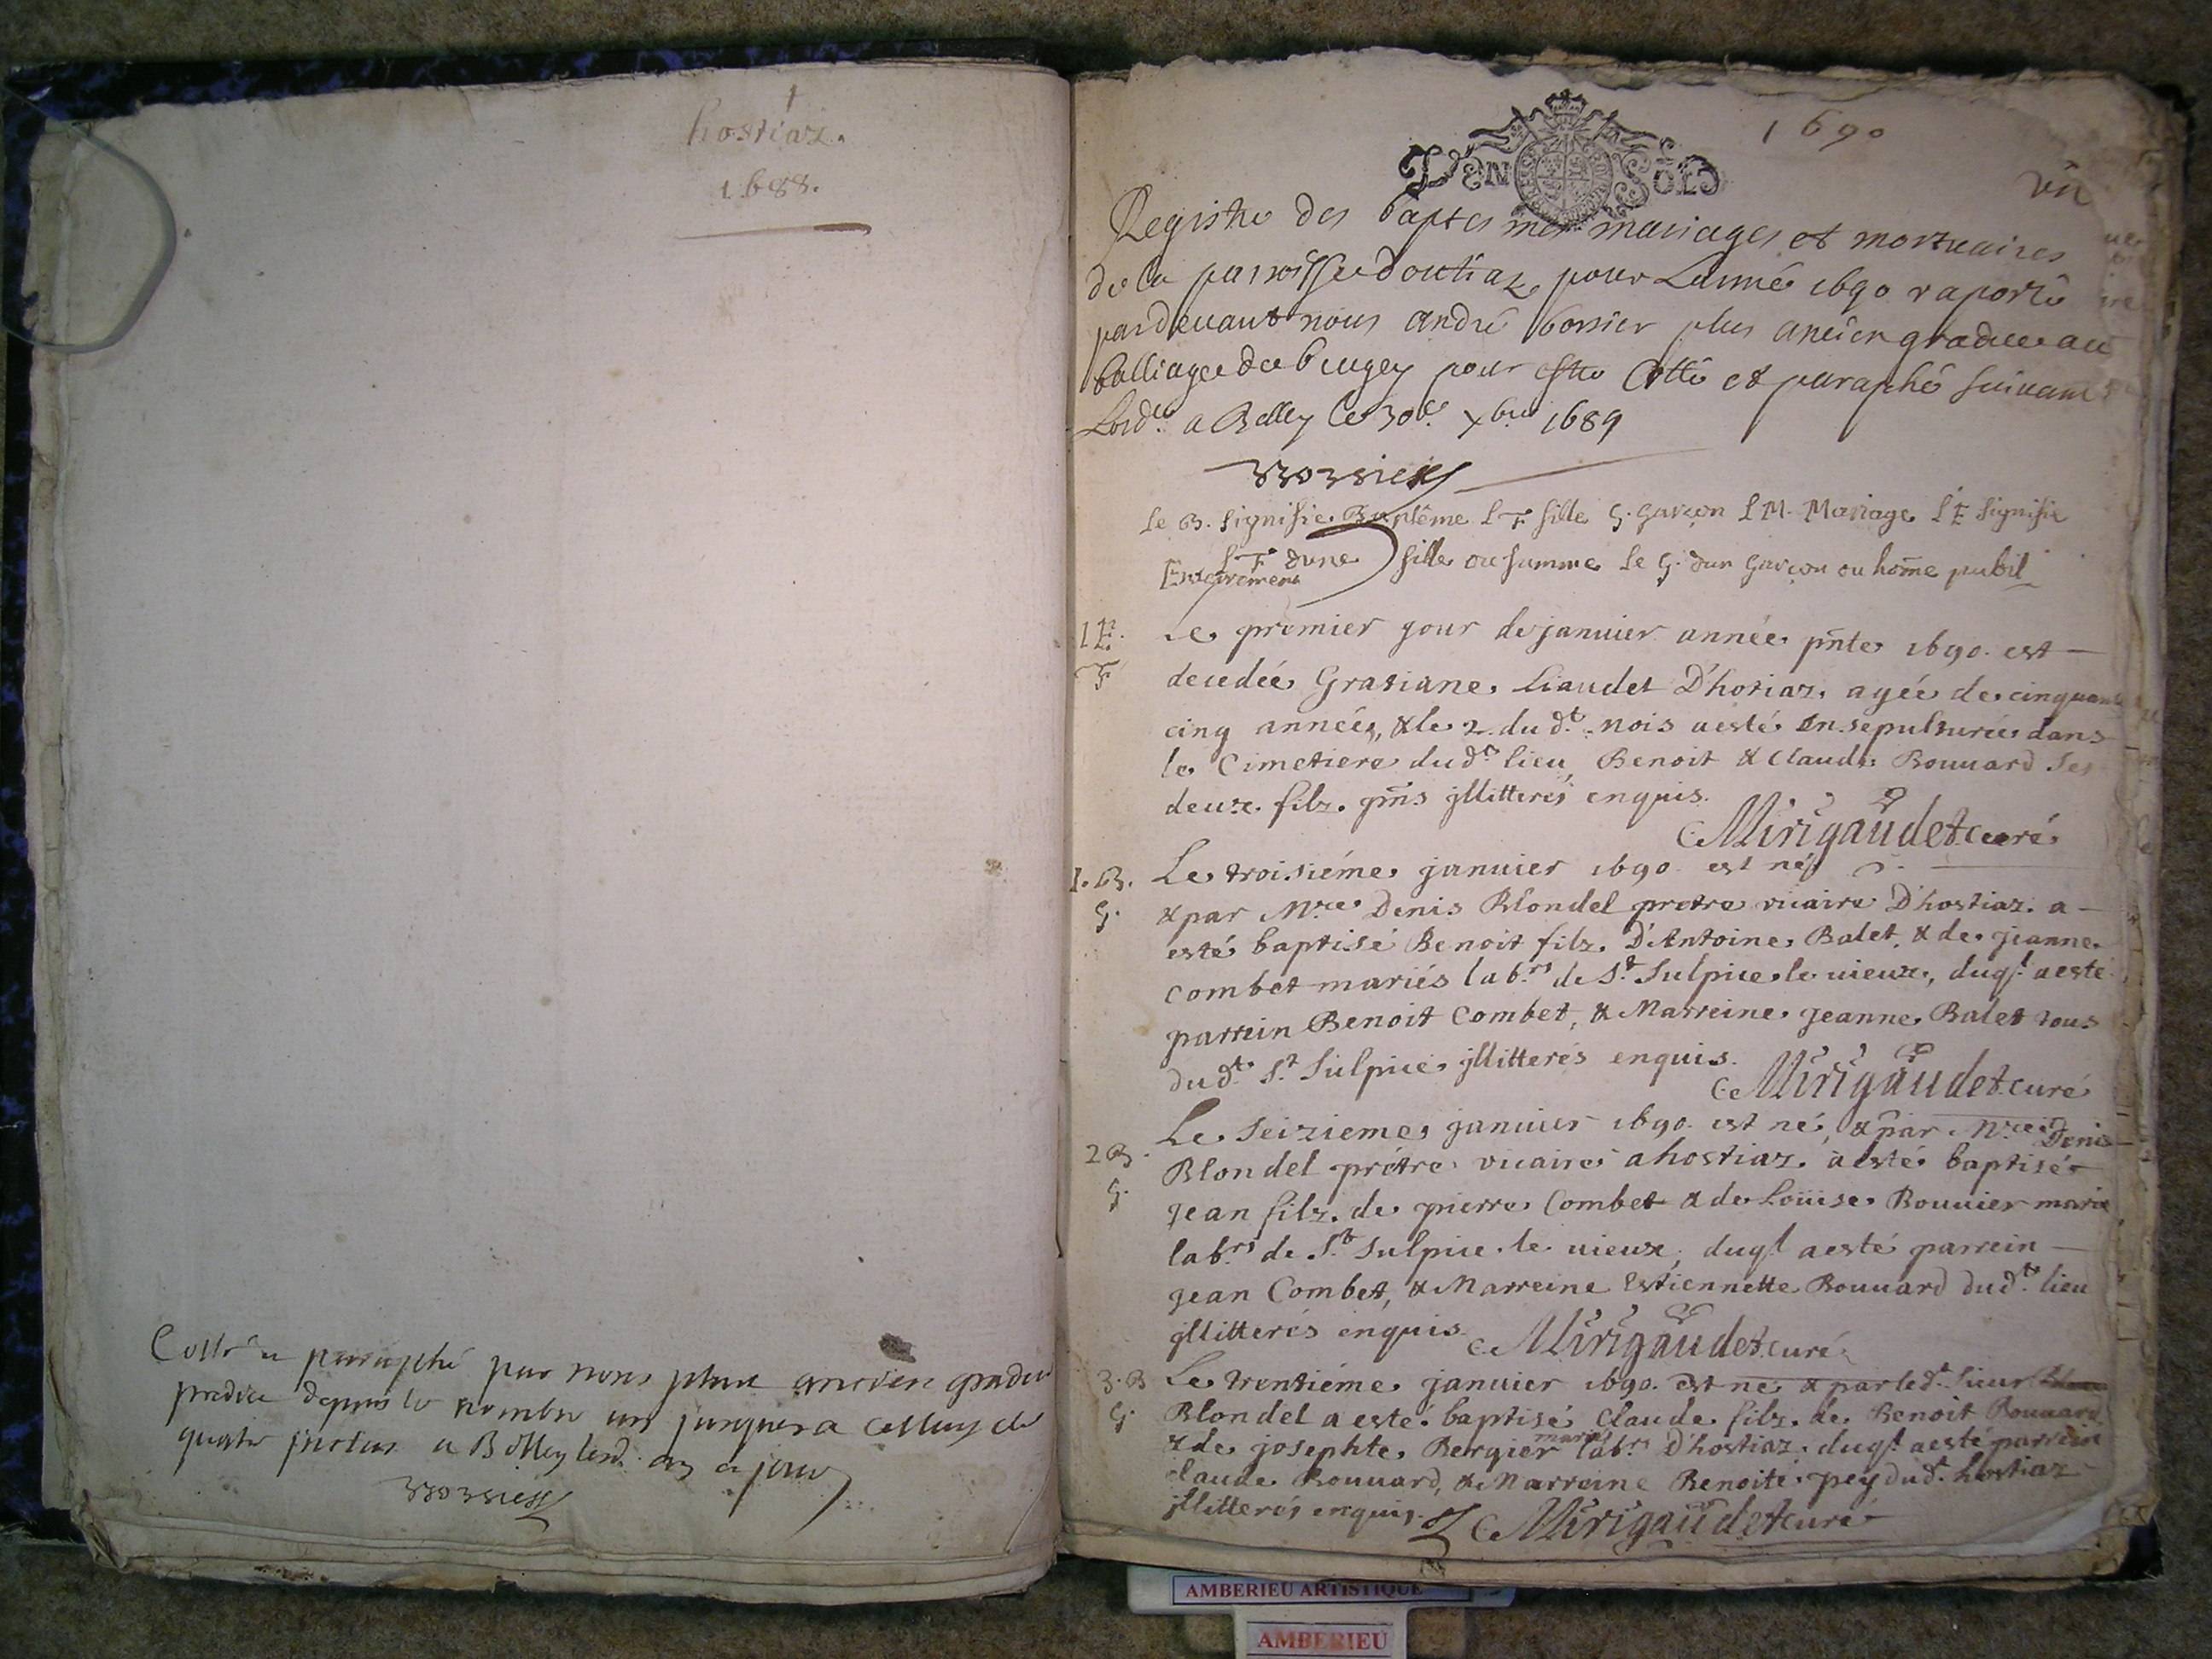 hostiaz.
1688.
Cotté et paraphé par nous plus ancien gradué
predict depuis le nombre un jusques a celluy de
quatre inclus a Belley lesd. an et jour
Borsier
1690
DEUX SOLS
un
Registre des baptesmes mariages et mortuaires
de la parroisse doutiaz pour Lanné 1690 raporté
pardeuant nous andré borsier plus ancien graduee au
balliage de beugey pour estre Cotté et paraphé suiuant
Lord.ce a Belley le 30.e xbre 1689
Borsier
le B. signifie Baptême l F fille G. Garçon l M. Mariage l'E signifie
Enterrement l F d'une fille ou famme le G. dun Garçon ou home pubil
1 E.
F
Le premier jour de januier année pnte 1690. est
decedée Grasiane Liaudet D'hostiaz, agée de cinquante
cinq années, & le 2. du d.t mois a esté ensepulturée dans
le Cimetiere dud.t lieu, Benoit & Claude Bouuard ses
deux filz. pns jllitterés enquis.
C Mirigaudet curé
1. B.
G.
Le troisiéme januier 1690. est né
& par Mre Denis Blondel pretre vicaire D'hostiaz. a
esté baptisé Benoit filz. D'Antoine Balet, & de jeanne
Combet mariés labrs de St. Sulpice le uieux, duql a esté
parrein Benoit Combet, & Marreine jeanne Balet tous
du d.t St Sulpice jllitterés enquis.
C Mirigaudet curé
2 B.
G.
Le seizieme januier 1690. est né, & par Mre Denis
Blondel prétre vicaire a hostiaz. a esté baptisé
jean filz. de pierre Combet & de Loüise Bouuier mariés
labrs de St Sulpice le uieux, duql a esté parrein
jean Combet, & Marreine Estiennette Bouuard dud.t lieu
jllitterés enquis.
C Mirigaudet curé
3. B
G.
Le trentiéme januier 1690. est né & par led.t sieur
Blondel a esté baptisé Claude filz. de Benoit Bouuard
& de josephte Bergier mariés labrs D'hostiaz. duql a esté parrein
claude Bouuard, & Marreine Benoite pey dud.t hostiaz
jllitterés enquis.
C Mirigaudet curé
AMBERIEU ARTISTIQUE
AMBERIEU